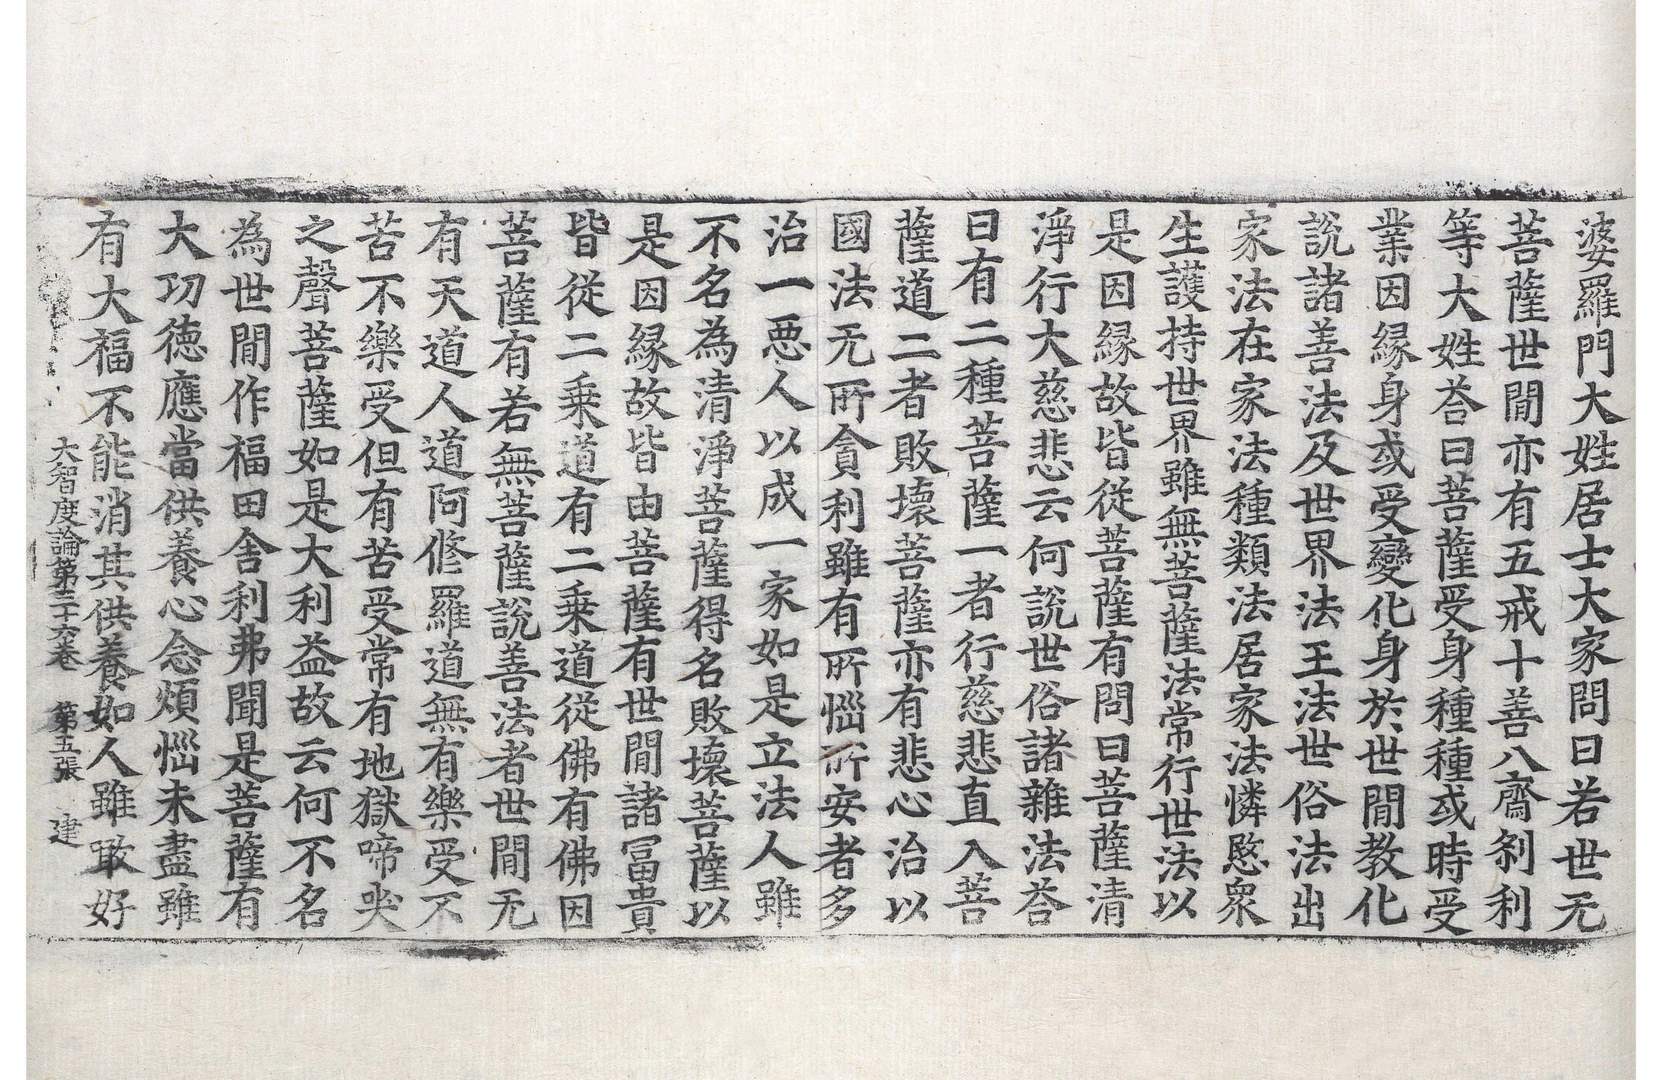 婆羅門大姓居士大家問曰若世无
菩薩世閒亦有五戒十善八齋刹利
等大姓荅曰菩薩受身種種或時受
業因縁身或受變化身於世閒教化
說諸善法及世界法王法世俗法出
家法在家法種類法居家法憐愍衆
生護持世界雖無菩薩法常行世法以
是因縁故皆從菩薩有問曰菩薩清
淨行大慈悲云何說世俗諸雜法荅
曰有二種菩薩一者行慈悲直入菩
薩道二者敗壞菩薩亦有悲心治以
國法无所貪利雖有所惱所安者多
治一惡人以成一家如是立法人雖
不名為清淨菩薩得名敗壞菩薩以
是因縁故皆由菩薩有世閒諸冨貴
皆從二乗道有二乗道從佛有佛因
菩薩有若無菩薩說善法者世閒无
有天道人道阿修羅道無有樂受不
苦不樂受但有苦受常有地獄啼哭
之聲菩薩如是大利益故云何不名
為世閒作福田舍利弗聞是菩薩有
大功德應當供養心念煩惱未盡雖
有大福不能消其供養如人雖敢好
大智度論第三十六卷　第五張　建